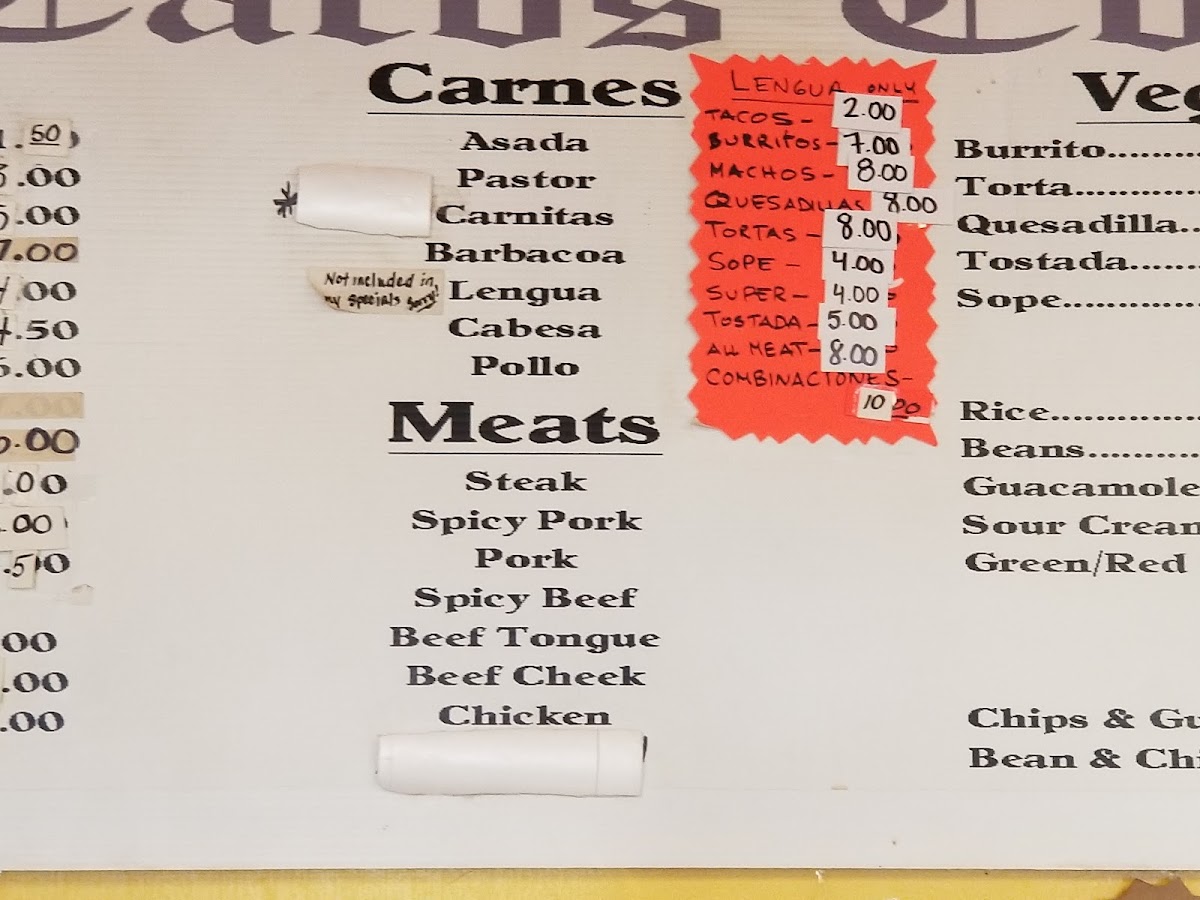 Tacos
.50
3.00
5.00
7.00
4.00
4.50
6.00
.00
.00
.00
.00
.50
00
.00
.00
Carnes
Asada
Pastor
*
Carnitas
Barbacoa
Not included in
my specials sorry!
Lengua
Cabesa
Pollo
Meats
Steak
Spicy Pork
Pork
Spicy Beef
Beef Tongue
Beef Cheek
Chicken
LENGUA ONLY
TACOS- 2.00
BURRITOS- 7.00
MACHOS- 8.00
QUESADILLAS 8.00
TORTAS - 8.00
SOPE - 4.00
SUPER- 4.00
TOSTADA- 5.00
ALL MEAT- 8.00
COMBINACIONES-
10.00
Veg
Burrito........
Torta...........
Quesadilla..
Tostada.......
Sope............
Rice.............
Beans..........
Guacamole
Sour Cream
Green/Red
Chips & Gu
Bean & Chi